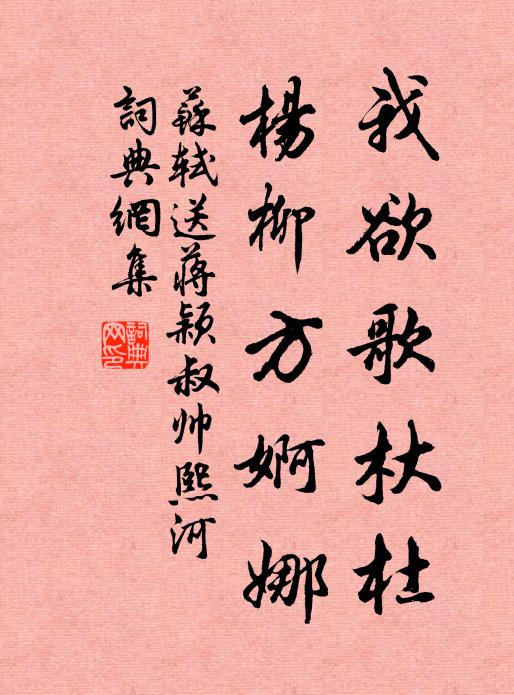 我欲歌杕杜
楊柳方婀娜
蘇軾送蔣颖叔帅熙河
詞典網集
詞典网印